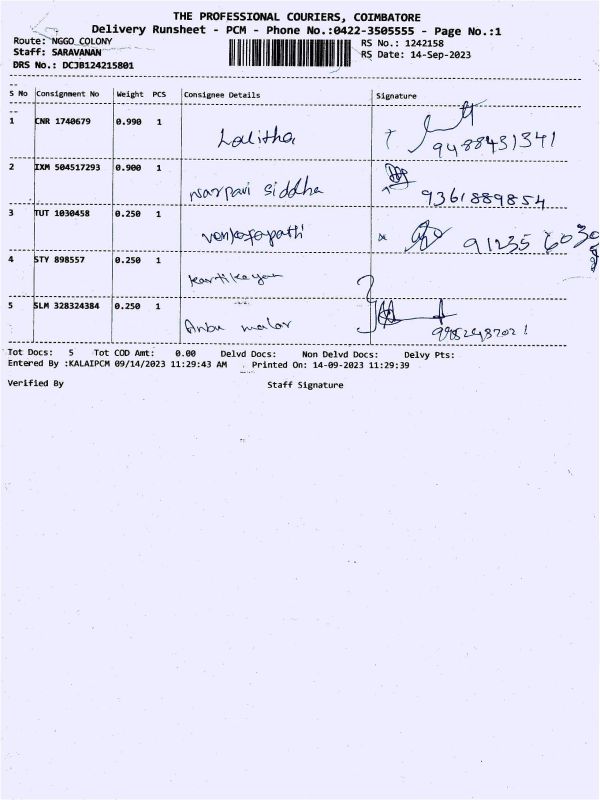 THE PROFESSIONAL COURIERS, COIMBATORE
Delivery Runsheet - PCM - Phone No.:0422-3505555 - Page No.:1
Route: NGGO COLONY RS No.: 1242158
Staff: SARAVANAN RS Date: 14-Sep-2023
DRS No.: DCJB124215801
S No Consignment No Weight PCS Consignee Details Signature
1 CNR 1740679 0.990 1 Lalitha 9488431341
2 IXM 504517293 0.900 1 siddha 9361889854
3 TUT 1030458 0.250 1 91235 6030
4 STY 898557 0.250 1 kartikeyan
5 SLM 328324384 0.250 1 Anbu malar
Tot Docs: 5 Tot COD Amt: 0.00 Delvd Docs: Non Delvd Docs: Delvy Pts:
Entered By :KALAIPCM 09/14/2023 11:29:43 AM . Printed On: 14-09-2023 11:29:39
Verified By Staff Signature